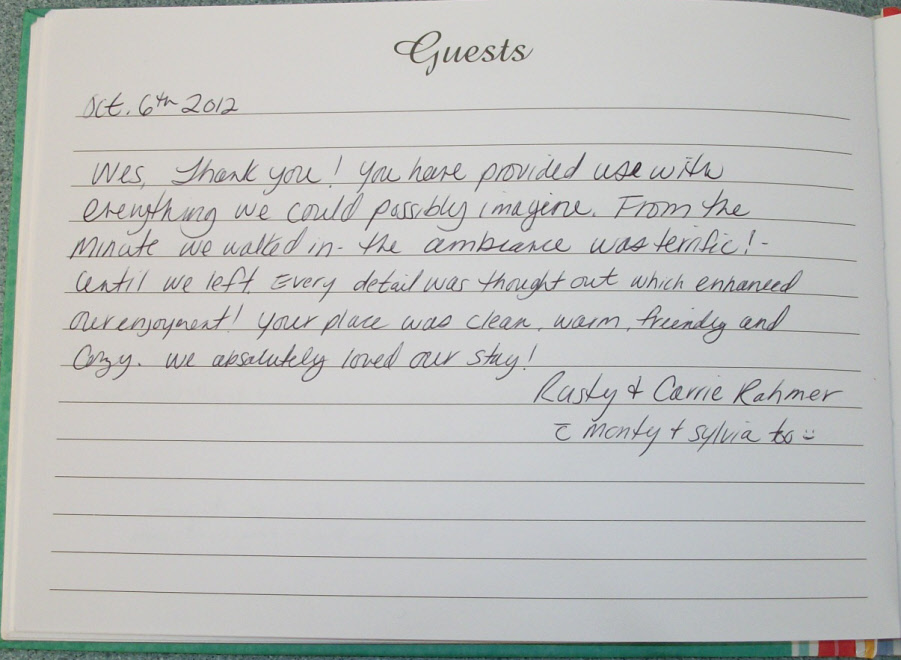 Guests
Oct. 6th 2012
Wes, Thank you! You have provided use with
everything we could possibly imagine. From the
minute we walked in - the ambiance was terrific! -
until we left. Every detail was thought out which enhanced
our enjoyment! Your place was clean, warm, friendly and
Cozy. We absolutely loved our stay!
Rusty & Carrie Rahmer
c̄ Monty + Sylvia too :)